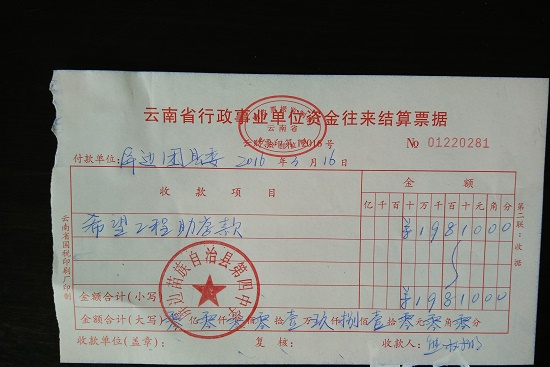 云南省行政事业单位资金往来结算票据
云南省
No 01220281
付款单位:屏边团县委 2016年5月16日
收款项目 金额
亿千百十万千百十元角分
希望工程助学款 ¥1981000
金额合计(小写) ¥1981000
金额合计(大写)零亿零仟零佰零拾壹万玖仟捌佰壹拾零元零角零分
收款单位(盖章): 复核: 收款人:
第二联:收据
云南省国税印刷厂印制
边苗族自治县第四中